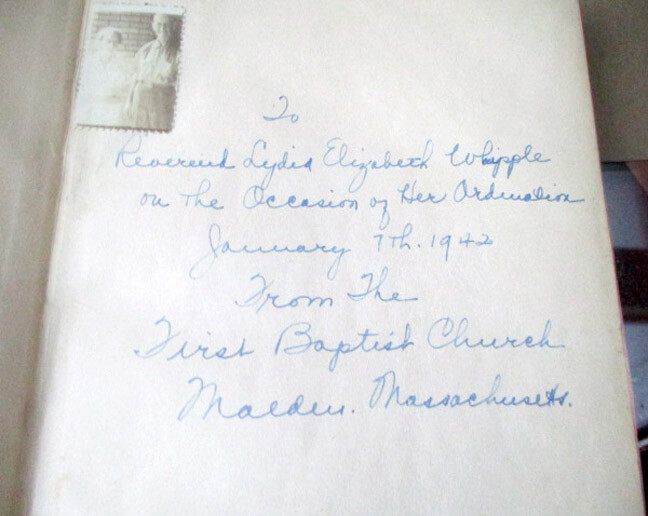 To
Reverend Lydia Elizabeth Whipple
on The Occasion of Her Ordination
January 7Th. 1942
From The
First Baptist Church
Malden. Massachusetts.